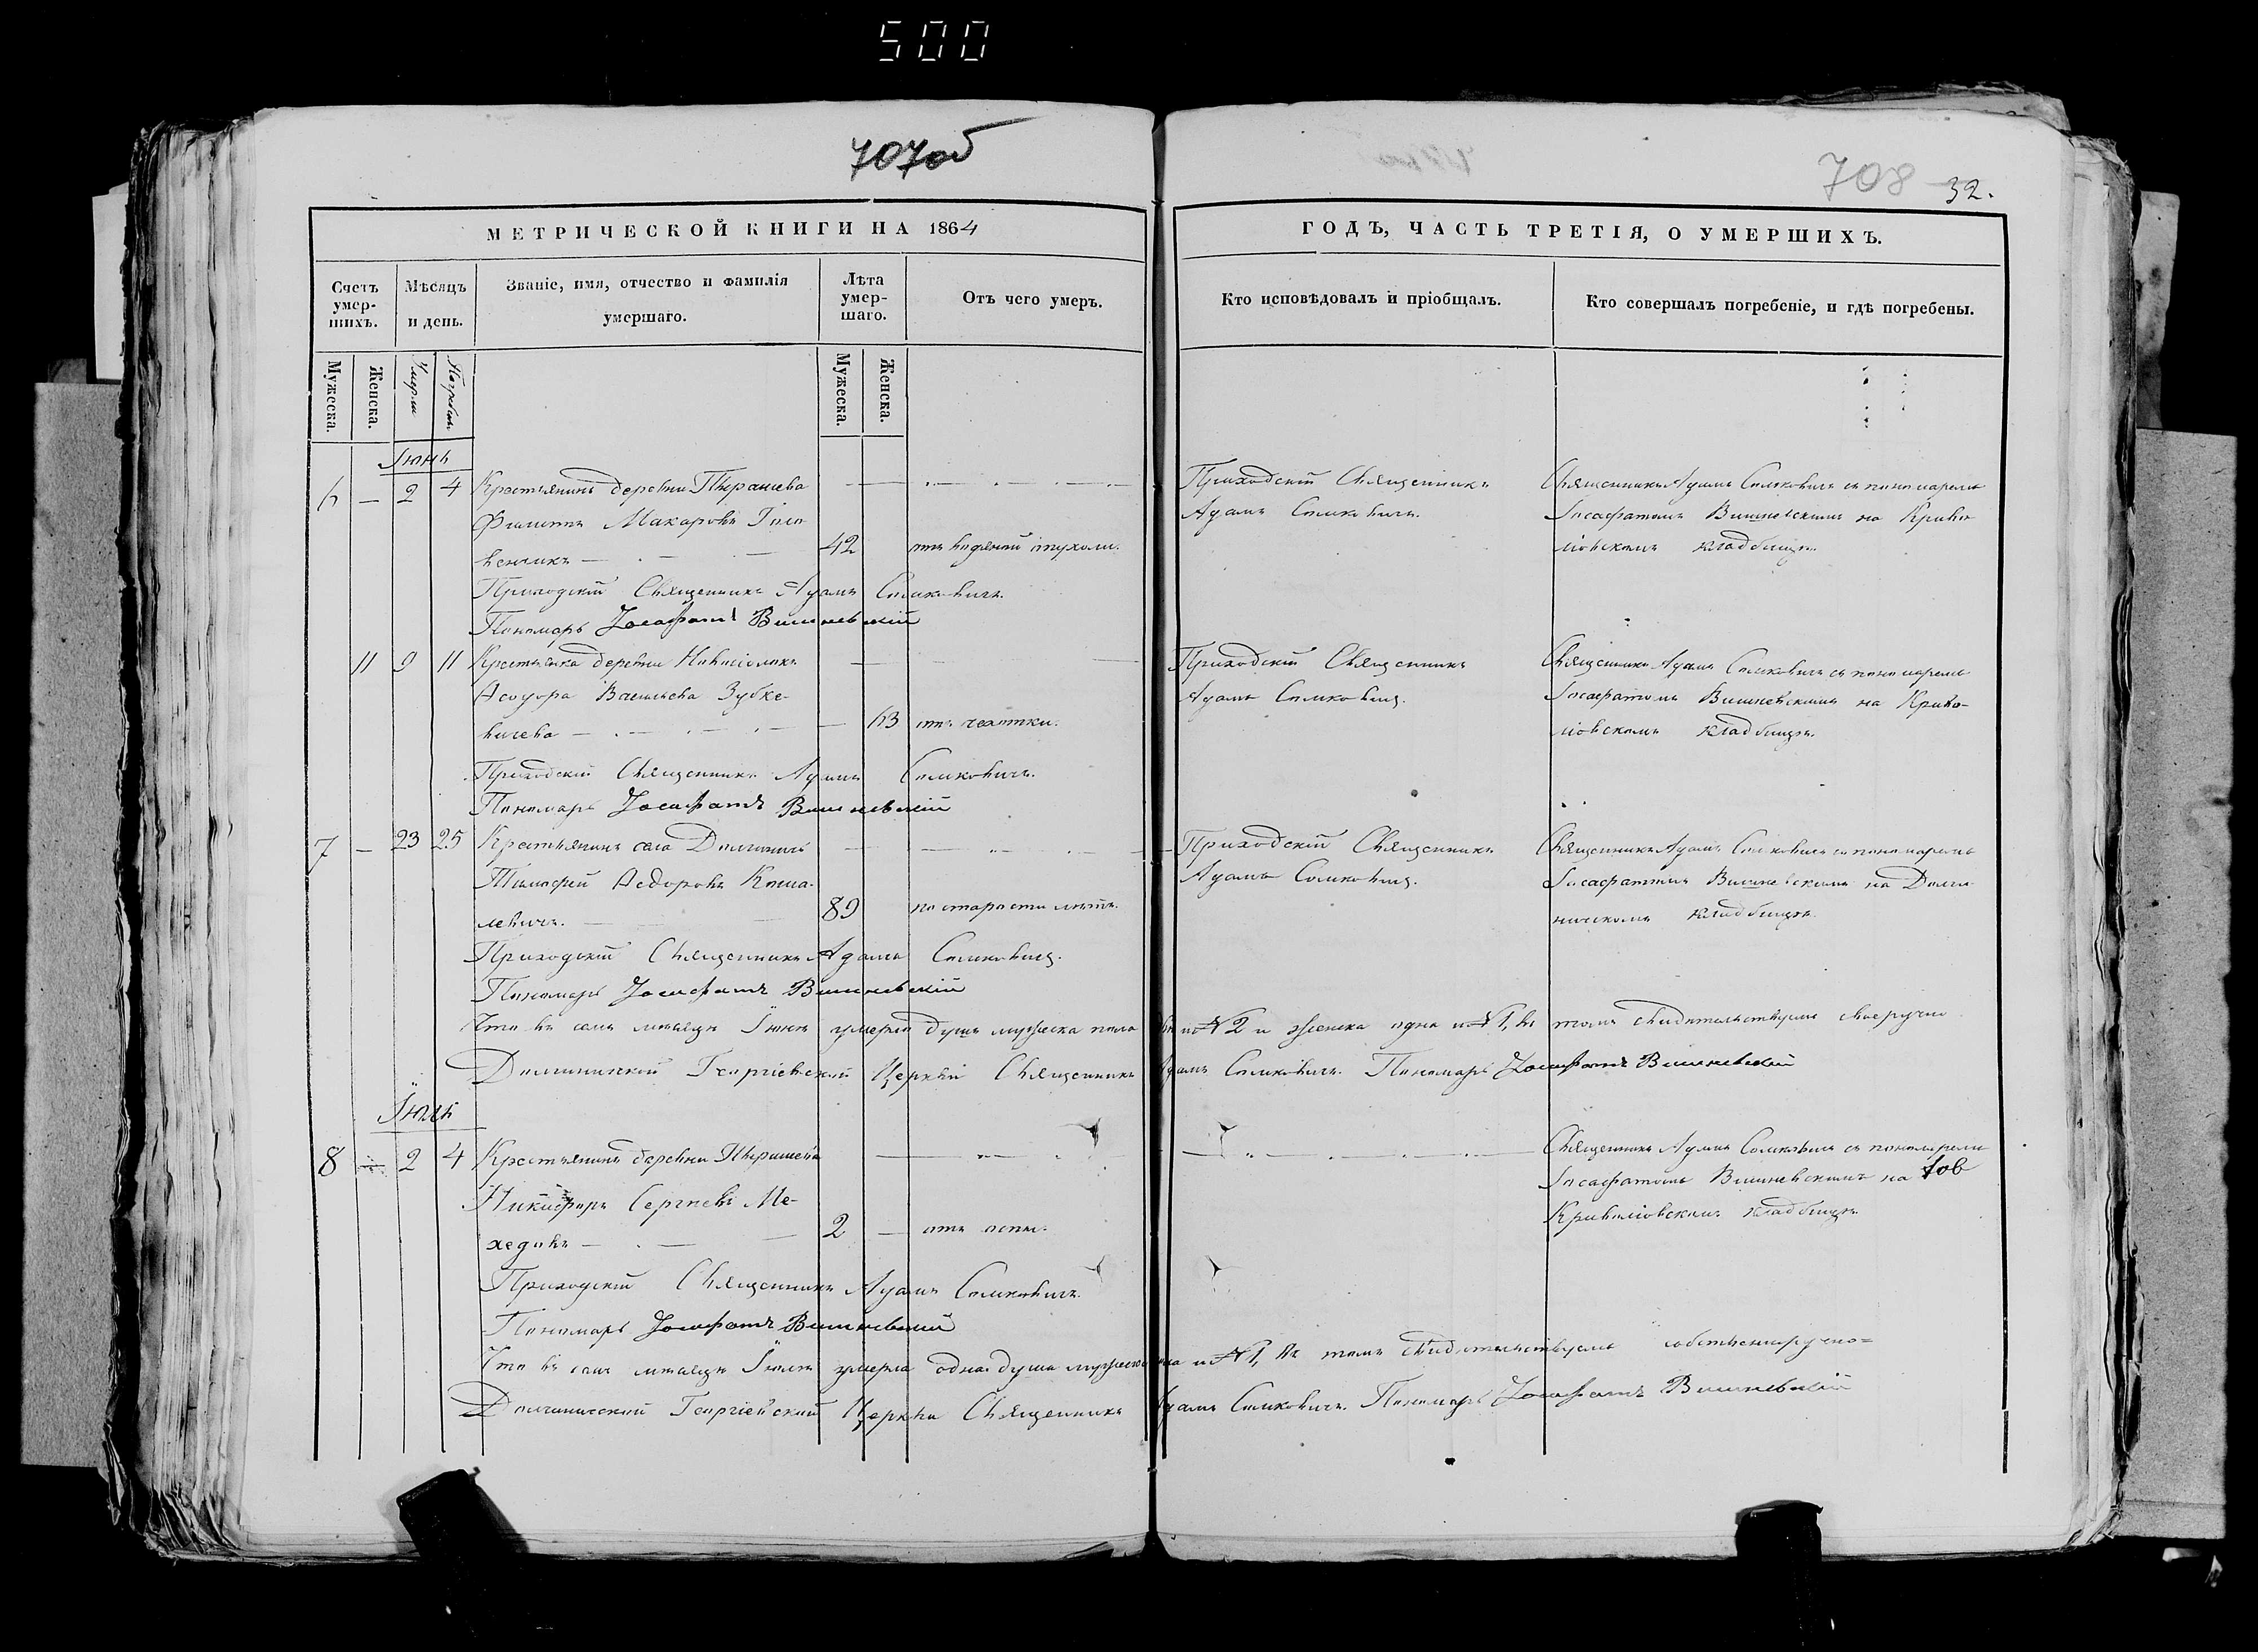 500
707об
708 32.
МЕТРИЧЕСКОЙ КНИГИ НА 1864
ГОДЪ, ЧАСТЬ ТРЕТІЯ, О УМЕРШИХЪ.
Счетъ умер-шихъ.
Мѣсяцъ и день.
Званіе, имя, отчество и фамилія умершаго.
Лѣта умер-шаго.
Отъ чего умеръ.
Кто исповѣдовалъ и пріобщалъ.
Кто совершалъ погребеніе, и гдѣ погребены.
Мужеска. Женска. Умерли Погребены Мужеска. Женска.
Іюнь
6 — 2 4 Крестьянинъ деревни
Филиппъ Макаровъ Голо
венчикъ — 42 отъ водяной опухоли.
Приходскій Священникъ
Адамъ Сомковичъ.
Священникъ Адамъ Сомковичъ съ пономаремъ
Іосафатомъ Вишневскимъ на Криво
кладбищѣ.
Приходскій Священникъ Адамъ Сомковичъ.
Пономарь Іосафатъ Вишневскій
11 9 11 Крестьянка деревни
Васильева Зубке-
вичева — 63 отъ чахотки.
Приходскій Священникъ
Адамъ Сомковичъ.
Священникъ Адамъ Сомковичъ съ пономаремъ
Іосафатомъ Вишневскимъ на Криво-
кладбищѣ.
Приходскій Священникъ Адамъ Сомковичъ.
Пономарь Іосафатъ Вишневскій
7 — 23 25 Крестьянинъ села
Тимофей Ѳедоровъ
левичъ. 89 по старости лѣтъ.
Приходскій Священникъ
Адамъ Сомковичъ.
Священникъ Адамъ Сомковичъ съ пономаремъ
Іосафатомъ Вишневскимъ на Долги
ничскомъ кладбищѣ.
Приходскій Священникъ Адамъ Сомковичъ.
Пономарь Іосафатъ Вишневскій
Что въ семъ мѣсяцѣ Іюнѣ умерло душъ мужеска пола № 2 и женска одна № 1, въ томъ свидѣтельствуемъ своеручно
Долгиничской Георгіевской Церкви Священникъ Адамъ Сомковичъ. Пономарь Іосафатъ Вишневскій
Іюль
8 — 2 4 Крестьянинъ деревни
Никифоръ Сергѣевъ Ме-
ходовъ — 2 — отъ оспы.
Священникъ Адамъ Сомковичъ съ пономаремъ
Іосафатомъ Вишневскимъ на
кладбищѣ
Приходскій Священникъ Адамъ Сомковичъ.
Пономарь Іосафатъ Вишневскій
Что въ семъ мѣсяцѣ Іюлѣ умерла одна душа мужеска № 1, въ томъ свидѣтельствуемъ собственноручно=
Долгиничской Георгіевской Церкви Священникъ Адамъ Сомковичъ. Пономарь Іосафатъ Вишневскій